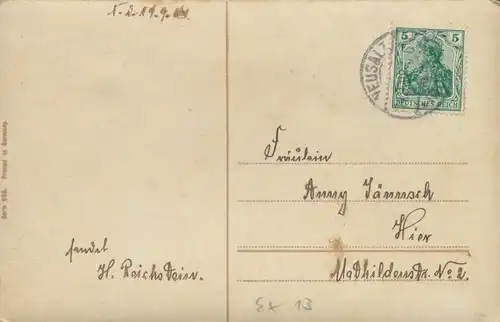 5 5
DEUTSCHES REICH
NEUSALZ
Fräulein
Anny Jännsch
Hier
Mathildenstr. No 2.
sendet
H. Reichstein.
Serie 688. Printed in Germany.
Ex 13